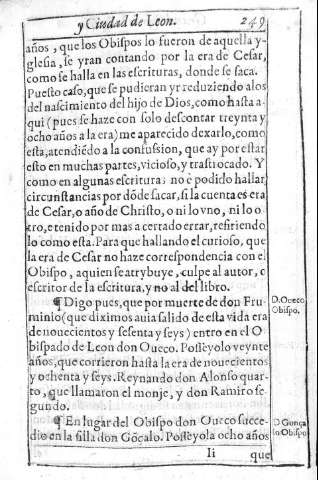 y Ciudad de Leon. 249
años, que los Obispos lo fueron de aquella y-
glesia, se yran contando por la era de Cesar,
como se halla en las escrituras, donde se saca.
Puesto caso, que se pudieran yr reduziendo a los
del nascimiento del hijo de Dios, como hasta a-
qui (pues se haze con solo descontar treynta y
ocho años a la era) me aparecido dexarlo, como
esta, atendiẽdo a la confussion, que ay por estar
esto en muchas partes, vicioso, y trastrocado. Y
como en algunas escrituras no é podido hallar,
circunstancias por dõde sacar, si la cuenta es era
de Cesar, o año de Christo, o ni lo vno, ni lo o-
tro, e tenido por mas acertado errar, refiriendo
lo como esta. Para que hallando el curioso, que
la era de Cesar no haze correspondencia con el
Obispo, a quien se atrybuye, culpe al autor, o
escritor de la escritura, y no al del libro.
¶ Digo pues, que por muerte de don Fru-
minio (que diximos auia salido de esta vida era
de nouecientos y sesenta y seys) entro en el O-
bispado de Leon don Oueco. Posseyolo veynte
años, que corrieron hasta la era de nouecientos
y ochenta y seys. Reynando don Alonso quar-
to, que llamaron el monje, y don Ramiro se-
gundo.
D. Oueco
Obispo.
¶ En lugar del Obispo don Oueco succe-
dio en la silla don Gõçalo. Posseyola ocho años
D Gonça
lo Obispo
Ii que